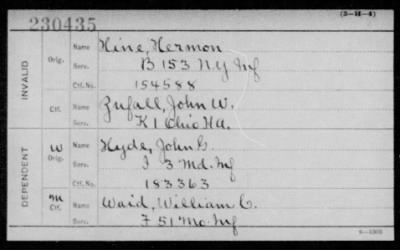 230435
(3-H-4)
INVALID
Orig. Name Hine, Hermon
Serv. B 153 N.Y. Inf
Ctf. No. 154588
Ctf. Name Zufall, John W.
Serv. K 1 Ohio H.A.
DEPENDENT
W Orig. Name Hyde, John C.
Serv. I 3 Md. Inf
Ctf. No. 183363
M Ctf. Name Waid, William C.
Serv. F 51 Mo. Inf